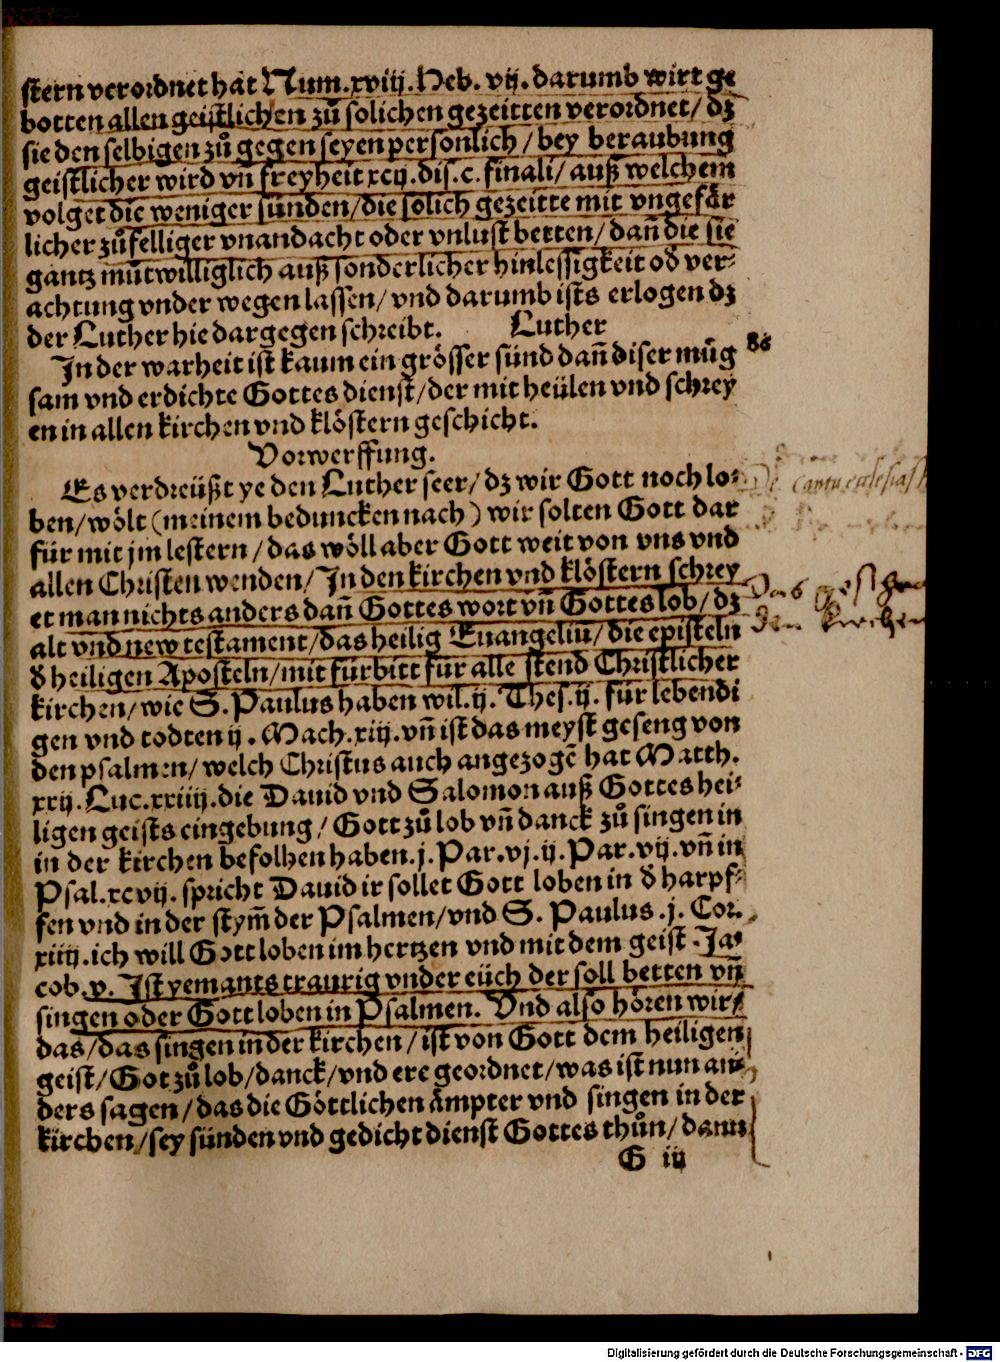 stern verordnet hat Num.xviij.Heb. vij. darumb wirt ge
botten allen geistlichen zů solichen gezeitten verordnet/ dz
sie den selbigen zů gegen seyen personlich / bey beraubung
geistlicher wird vñ freyheit xcij.dis.c. finali/ auß welchem
volget die weniger sünden/die solich gezeitte mit vngefår
licher zůfelliger vnandacht oder vnlust betten/ dañ die sie
gantz můtwilliglich auß sonderlicher hinlessigkeit od ver⸗
achtung vnder wegen lassen/ vnd darumb ists erlogen dz
der Luther hie dargegen schreibt. Luther
In der warheit ist kaum ein grösser sünd dañ diser můg
sam vnd erdichte Gottes dienst/der mit heülen vnd schrey
en in allen kirchen vnd klöstern geschicht.
86
Vorwerffung.
Es verdreüßt ye den Luther seer/ dz wir Gott noch lo⸗
ben/wölt (meinem beduncken nach) wir solten Gott dar
für mit jm lestern /das wöll aber Gott weit von vns vnd
allen Christen wenden/In den kirchen vnd klöstern schrey
et man nichts anders dañ Gottes wort vñ Gottes lob/ dz
alt vnd new testament/das heilig Euangeliũ/ die episteln
d heiligen Aposteln/mit fürbitt für alle stend Christlicher
kirchen/wie S.Paulus haben wil.ij.Thes.ij. für lebendi
gen vnd todten ij . Mach.xij.vñ ist das meyst geseng von
den psalmen/ welch Christus auch angezogẽ hat Matth.
xxij.Luc.xxiiij.die Dauid vnd Salomon auß Gottes hei⸗
ligen geists eingebung / Gott zů lob vñ danck zů singen in
in der kirchen befolhen haben.j.Par.vj.ij.Par.vij.vñ in
Psal.xcvij. spricht Dauid ir sollet Gott loben in d harpf⸗
fen vnd in der stym̃ der Psalmen/vnd S. Paulus .j. Cor.
xiiij.ich will Gott loben im hertzen vnd mit dem geist .Ja⸗
cob.v. Ist yemants traurig vnder eüch der soll betten vñ
singen oder Gott loben in Psalmen. Vnd also hören wir/
das/das singen in der kirchen/ ist von Gott dem heiligen
geist/Got zů lob/danck/vnd ere geordnet/was ist nun an⸗
ders sagen/das die Göttlichen åmpter vnd singen in der
kirchen/sey sünden vnd gedicht dienst Gottes thůn/dann
G iij
De Cantu ecclesiast
Das geschrey
den kirchen
Digitalisierung gefördert durch die Deutsche Forschungsgemeinschaft - DFG